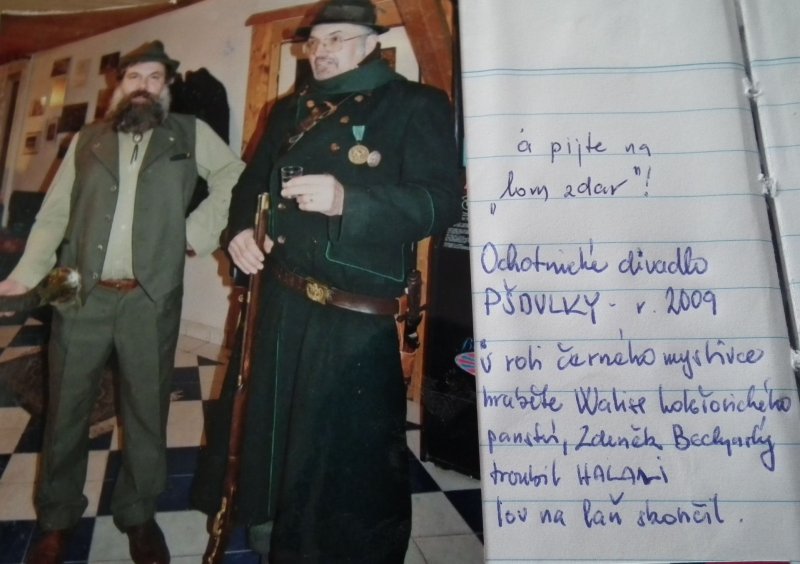 á pijte na
„lovu zdar"!
Ochotnické divadlo
PŠDULKY - r. 2009
v roli černého myslivce
hraběte Walise kolešovického
panství, Zdeněk Bechynský
troubil HALALI
lov na laň skončil.